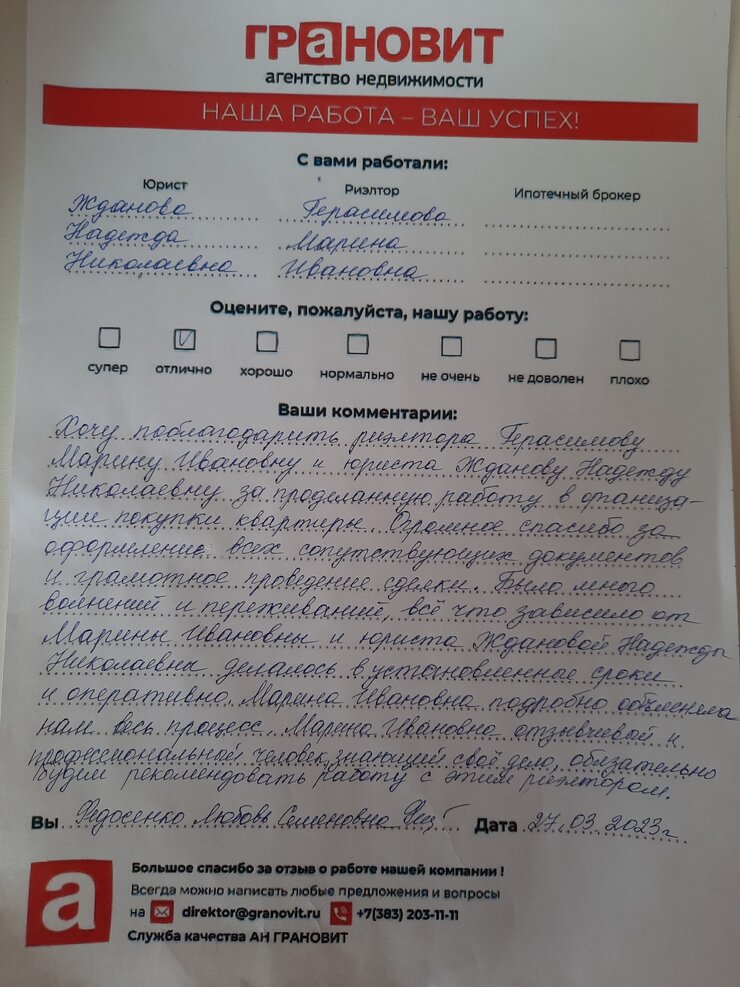 ГРаНОВИТ
агентство недвижимости
НАША РАБОТА – ВАШ УСПЕХ!
С вами работали:
Юрист Риэлтор Ипотечный брокер
Жданова Герасимова
Надежда Марина
Николаевна Ивановна
Оцените, пожалуйста, нашу работу:
супер отлично хорошо нормально не очень не доволен плохо
Ваши комментарии:
Хочу поблагодарить риэлтора Герасимову
Марину Ивановну и юриста Жданову Надежду
Николаевну за проделанную работу в органиıза-
ции покупки квартиры. Огромное спасибо за
оформление всех сопутствующих документов
и грамотное проведение сделки. Было много
волнений и переживаний, всё что зависило от
Марины Ивановны и юриста Ждановой Надежды
Николаевны делалось в установленные сроки
и оперативно. Марина Ивановна подробно объясняла
нам весь процесс. Марина Ивановна отзывчивый и
профессиональный человек, знающий своё дело, обязательно
будем рекомендовать работу с этим риэлтором.
Вы Федосенко Любовь Семеновна Дата 27.03.2023г
а
Большое спасибо за отзыв о работе нашей компании !
Всегда можно написать любые предложения и вопросы
на direktor@granovit.ru +7(383) 203-11-11
Служба качества АН ГРАНОВИТ